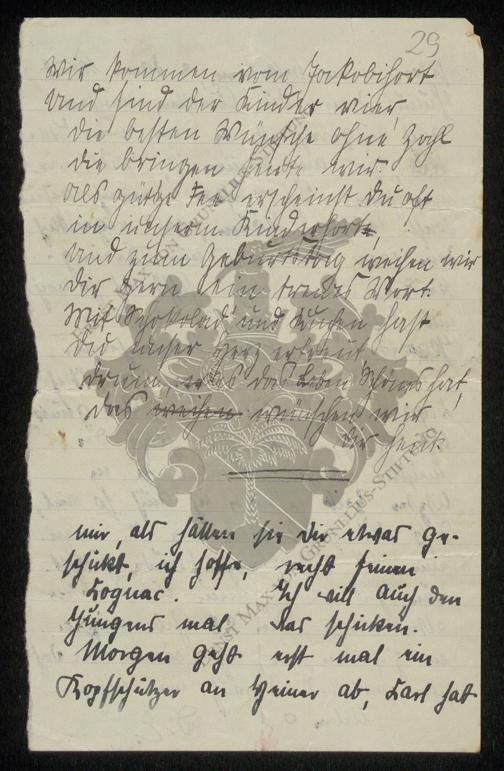 29
Wir kommen vom Jakobihort
Und sind der Kinder vier,
die besten Wünsche ohne Zahl
die bringen heute wir.
Als gütge Fee erscheinst Du oft
in unserm Kinderhort
Und zum Geburtstag weihen wir
Dir gern ein treues Wort.
Mit Schokolad' und Kuchen hast
Du unser Herz erfreut
drum was das Leben Schönes hat,
das weihen wünschen wir
Dir heut.
mir, als hätten sie Dir etwas ge-
schickt, ich hoffe, recht feinen
Cognac. Ich will auch den
Jungens mal was schicken.
Morgen geht erst mal ein
Kopfschützer an Heiner ab, Carl hat
ERNST MAX VON GRUNELIUS-STIFTUNG
ERNST MAX VON GRUNELIUS-STIFTUNG